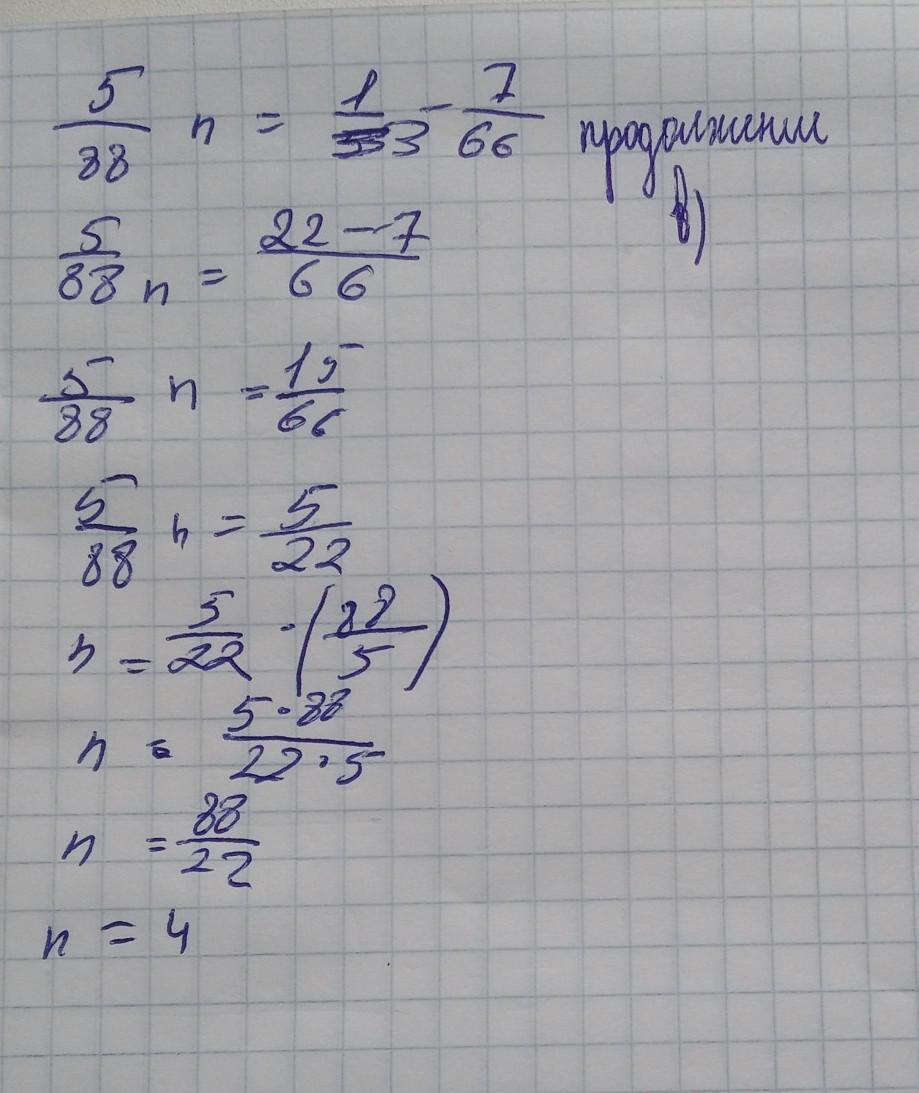 5/88 n = 1/3 - 7/66 продолжение
в)
5/88 n = 22-7/66
5/88 n = 15/66
5/88 n = 5/22
n = 5/22 · (88/5)
n = 5·88/22·5
n = 88/22
n = 4